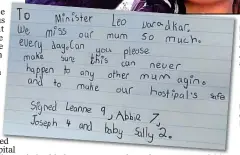 To Minister Leo Varadkar.
We miss our mum so much.
every day. Can you please
make sure this can never
happen to any other mum agin.
and to make our hostipal's safe
Signed Leanne 9, Abbie 7,
Joseph 4 and baby Sally 2.